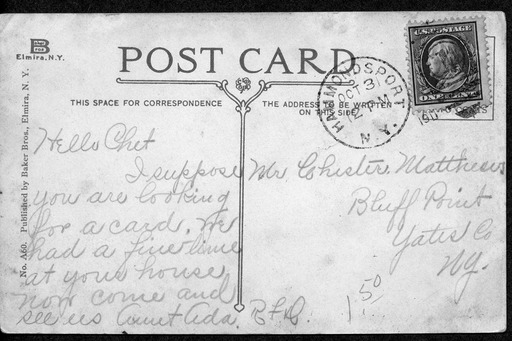 BAKER BROS
Elmira, N.Y.
POST CARD
THIS SPACE FOR CORRESPONDENCE
THE ADDRESS TO BE WRITTEN
ON THIS SIDE
U.S. POSTAGE
ONE CENT
HAMMONDSPORT
OCT 3
12 M
N.Y.
CENTS
No. A60. Published by Baker Bros., Elmira, N. Y.
Hello Chet
I suppose
you are looking
for a card. We
had a fine time
at your house
now come and
see us Aunt Ada.
Mr Chester Matthews
Bluff Point
Yates Co
NY.
R.F.D.
1.50